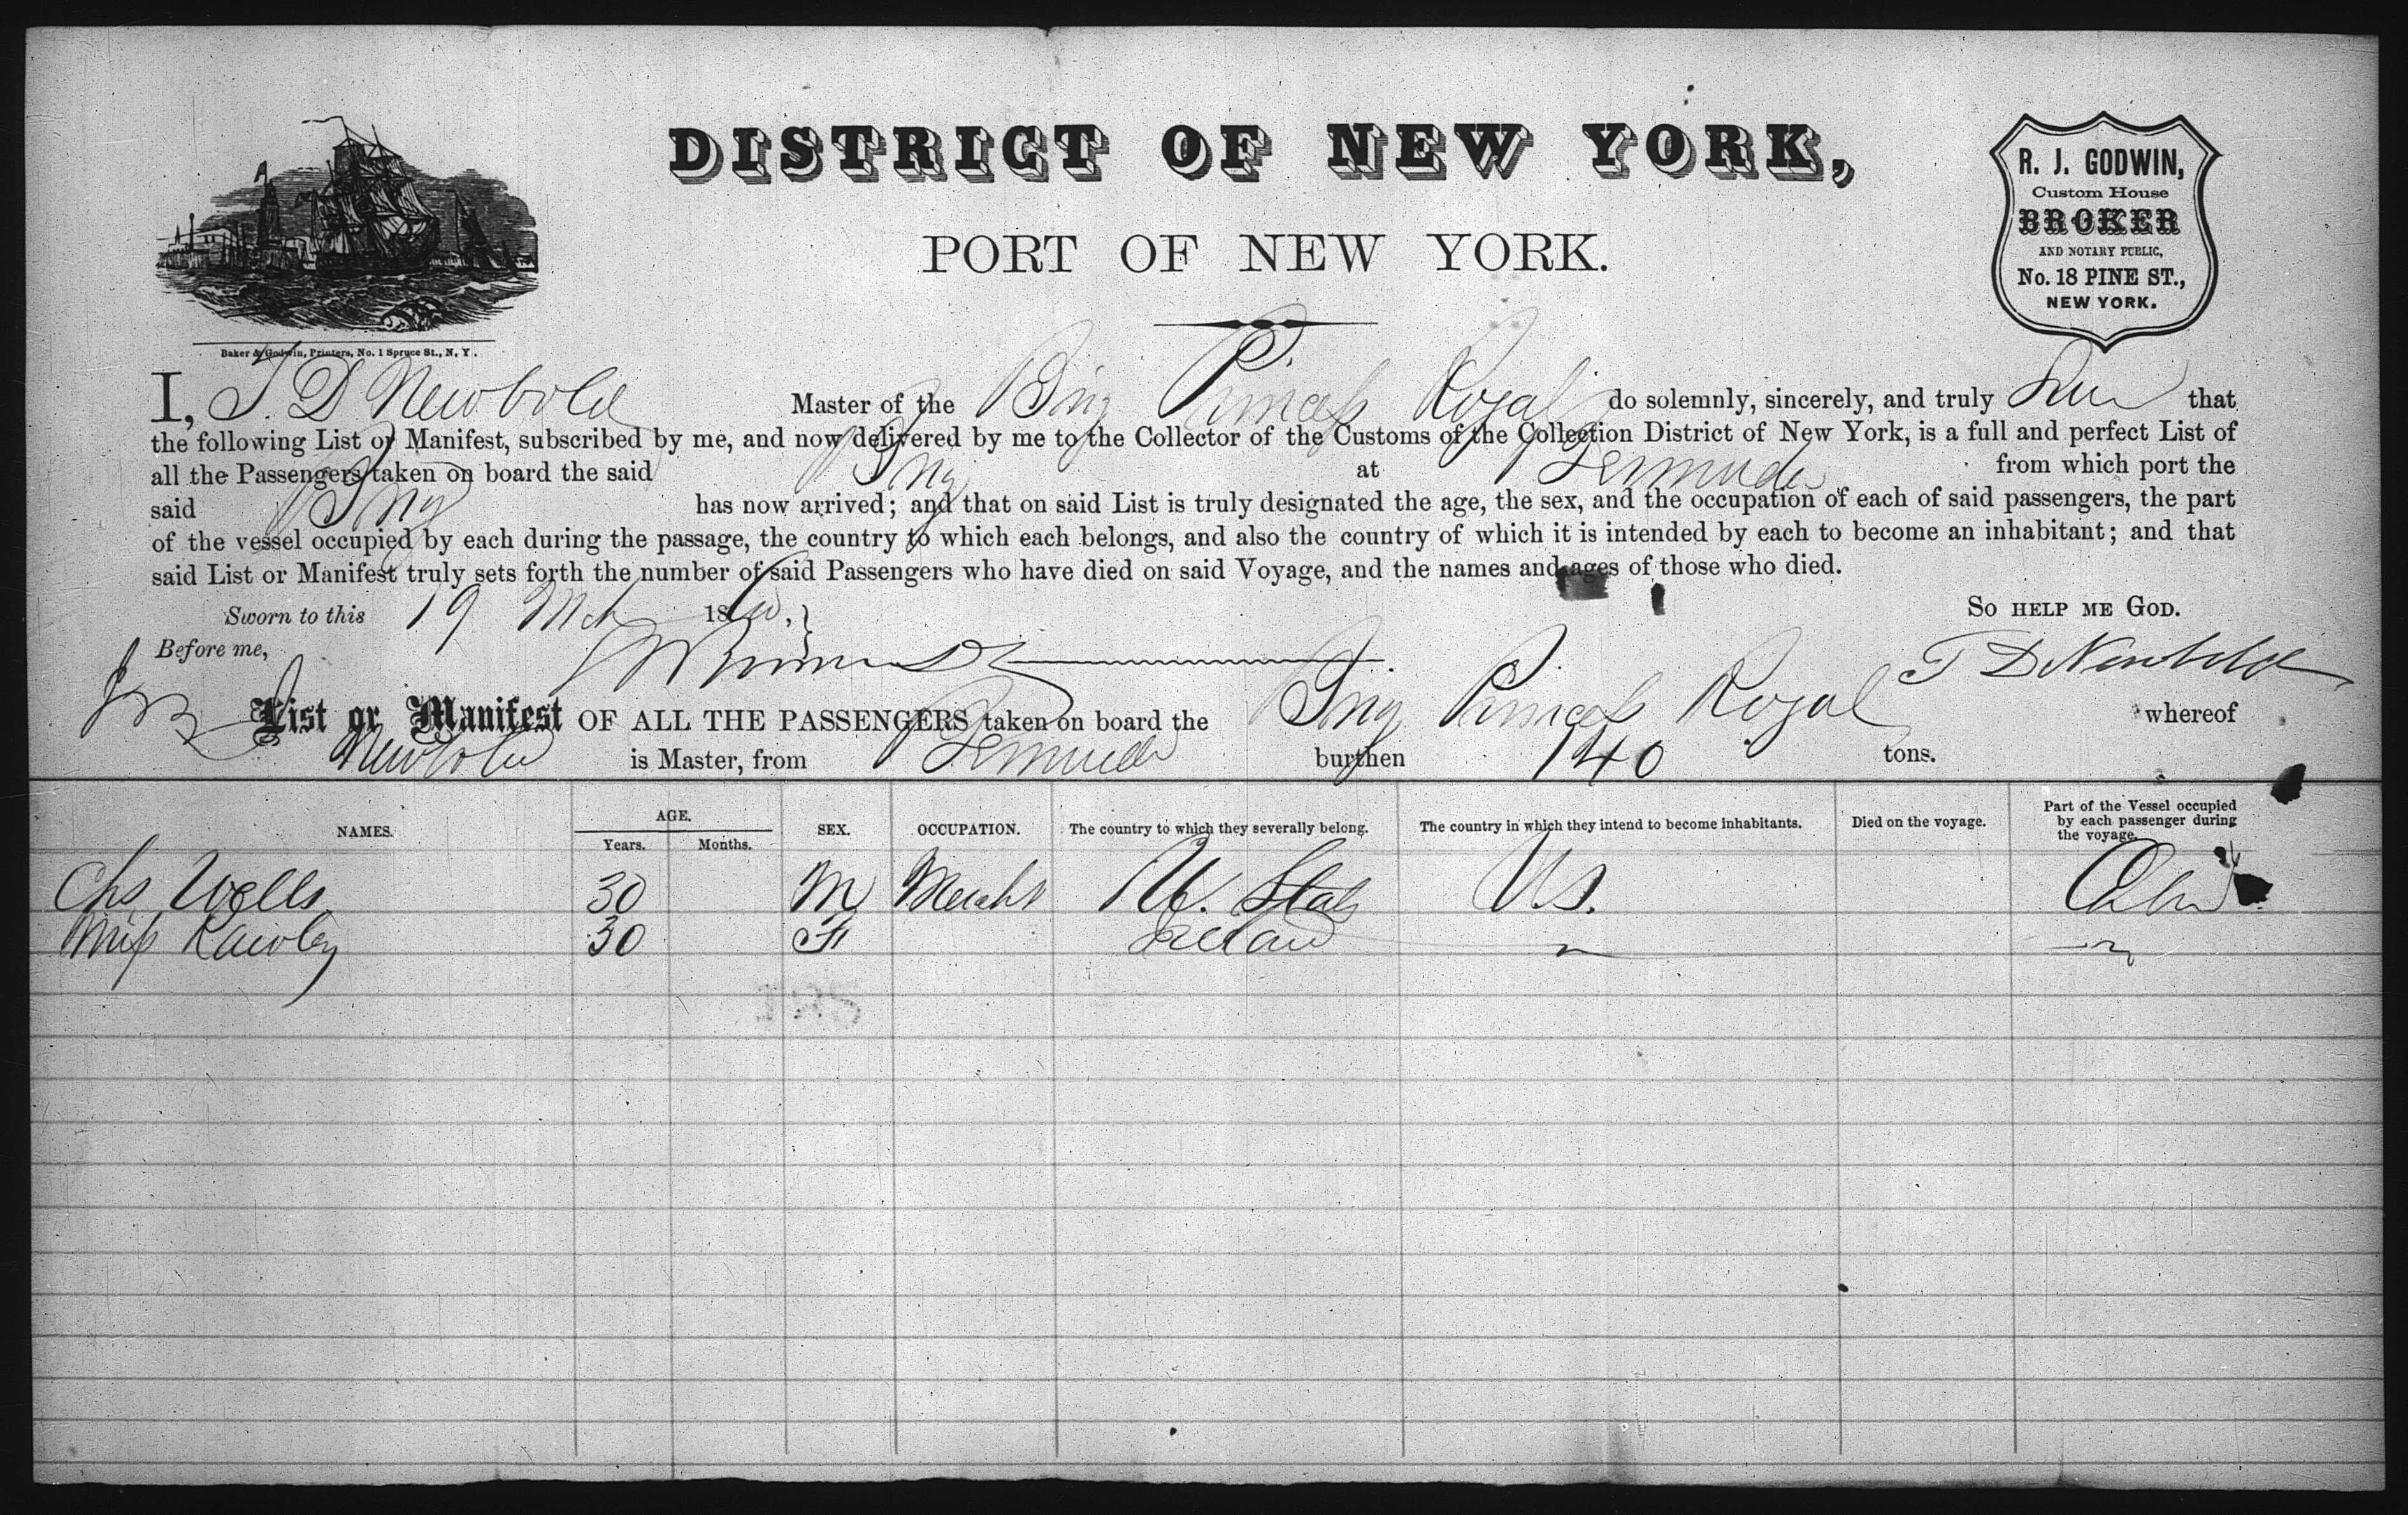 DISTRICT OF NEW YORK,
PORT OF NEW YORK.
R. J. GODWIN,
Custom House
BROKER
AND NOTARY PUBLIC,
No. 18 PINE ST.,
NEW YORK.
Baker & Godwin, Printers, No. 1 Spruce St., N. Y.
I, T. D Newbold Master of the Brig Princess Royal do solemnly, sincerely, and truly that
the following List or Manifest, subscribed by me, and now delivered by me to the Collector of the Customs of the Collection District of New York, is a full and perfect List of
all the Passengers taken on board the said Brig at Bermuda from which port the
said Brig has now arrived; and that on said List is truly designated the age, the sex, and the occupation of each of said passengers, the part
of the vessel occupied by each during the passage, the country to which each belongs, and also the country of which it is intended by each to become an inhabitant; and that
said List or Manifest truly sets forth the number of said Passengers who have died on said Voyage, and the names and ages of those who died.
Sworn to this 19 Mch 18 So help me God.
Before me, T D Newbold
List or Manifest OF ALL THE PASSENGERS taken on board the Brig Princess Royal whereof
Newbold is Master, from Bermuda burthen 140 tons.
NAMES. AGE. Years. Months. SEX. OCCUPATION. The country to which they severally belong. The country in which they intend to become inhabitants. Died on the voyage. Part of the Vessel occupied by each passenger during the voyage.
Chs Wells 30 M Mercht U. States U.S. Cabin
Miss Rawley 30 F Ireland